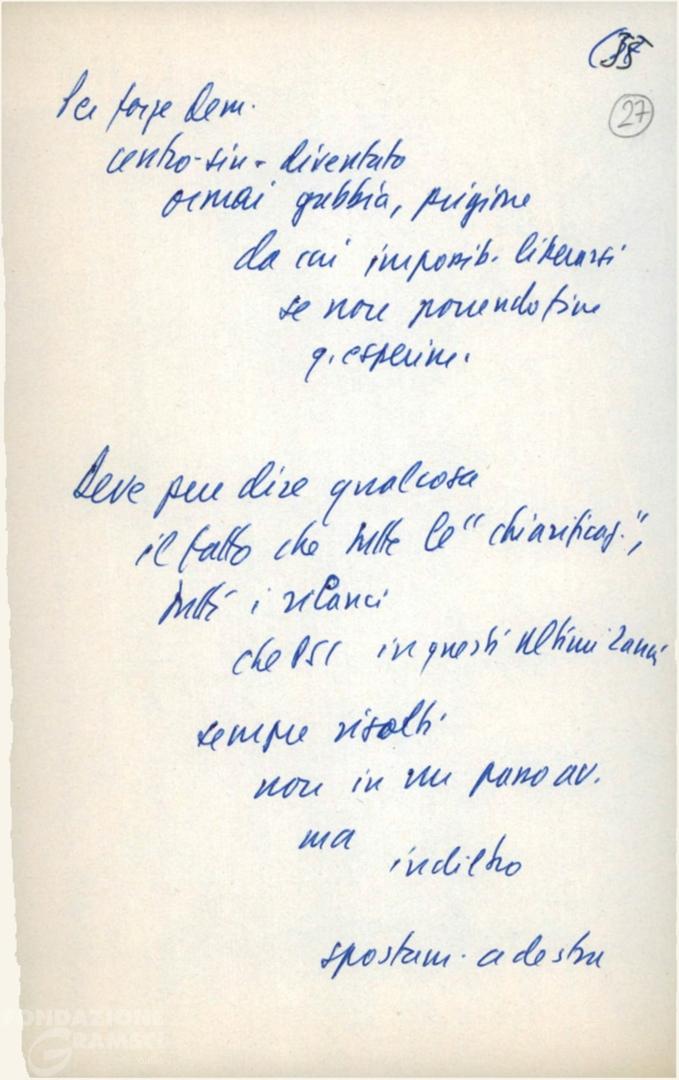 27
Per forze Dem.
centro-sin. diventato
ormai gabbia, prigione
da cui impossib. liberarsi
se non ponendo fine
q. esperim.
Deve pur dire qualcosa
il fatto che tutte le "chiarificaz.",
tutti i rilanci
che PSI in questi ultimi 2 anni
sempre risolti
non in un passo av.
ma
indietro
spostam. a destra
FONDAZIONE
GRAMSCI